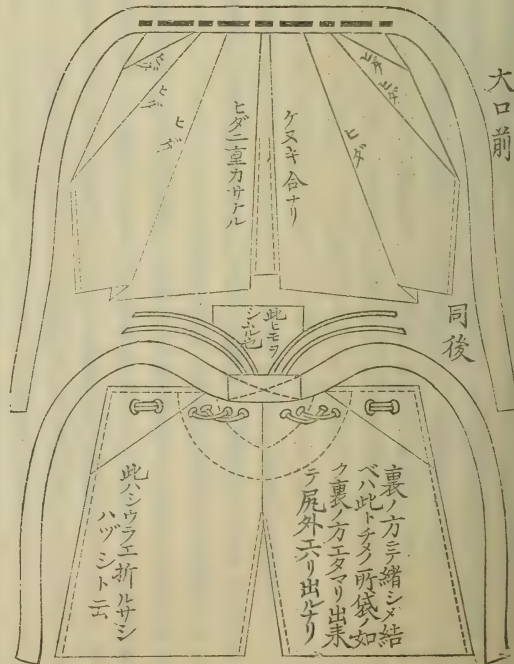 大口前
ヒダ
ヒダ
ヒダ
ケヌキ合ナリ
ヒダ二重カサナル
ヒダ
ヒダ
ヒダ
同後
此ヒモヲ
シムル也
裏ノ方ニテ緒シメ結
ベハ此トチメノ所袋ノ如
ク裏ノ方エタマリ出来
テ尻外エハリ出ルナリ
此ハシウラエ折ルサシ
ハヅシト云